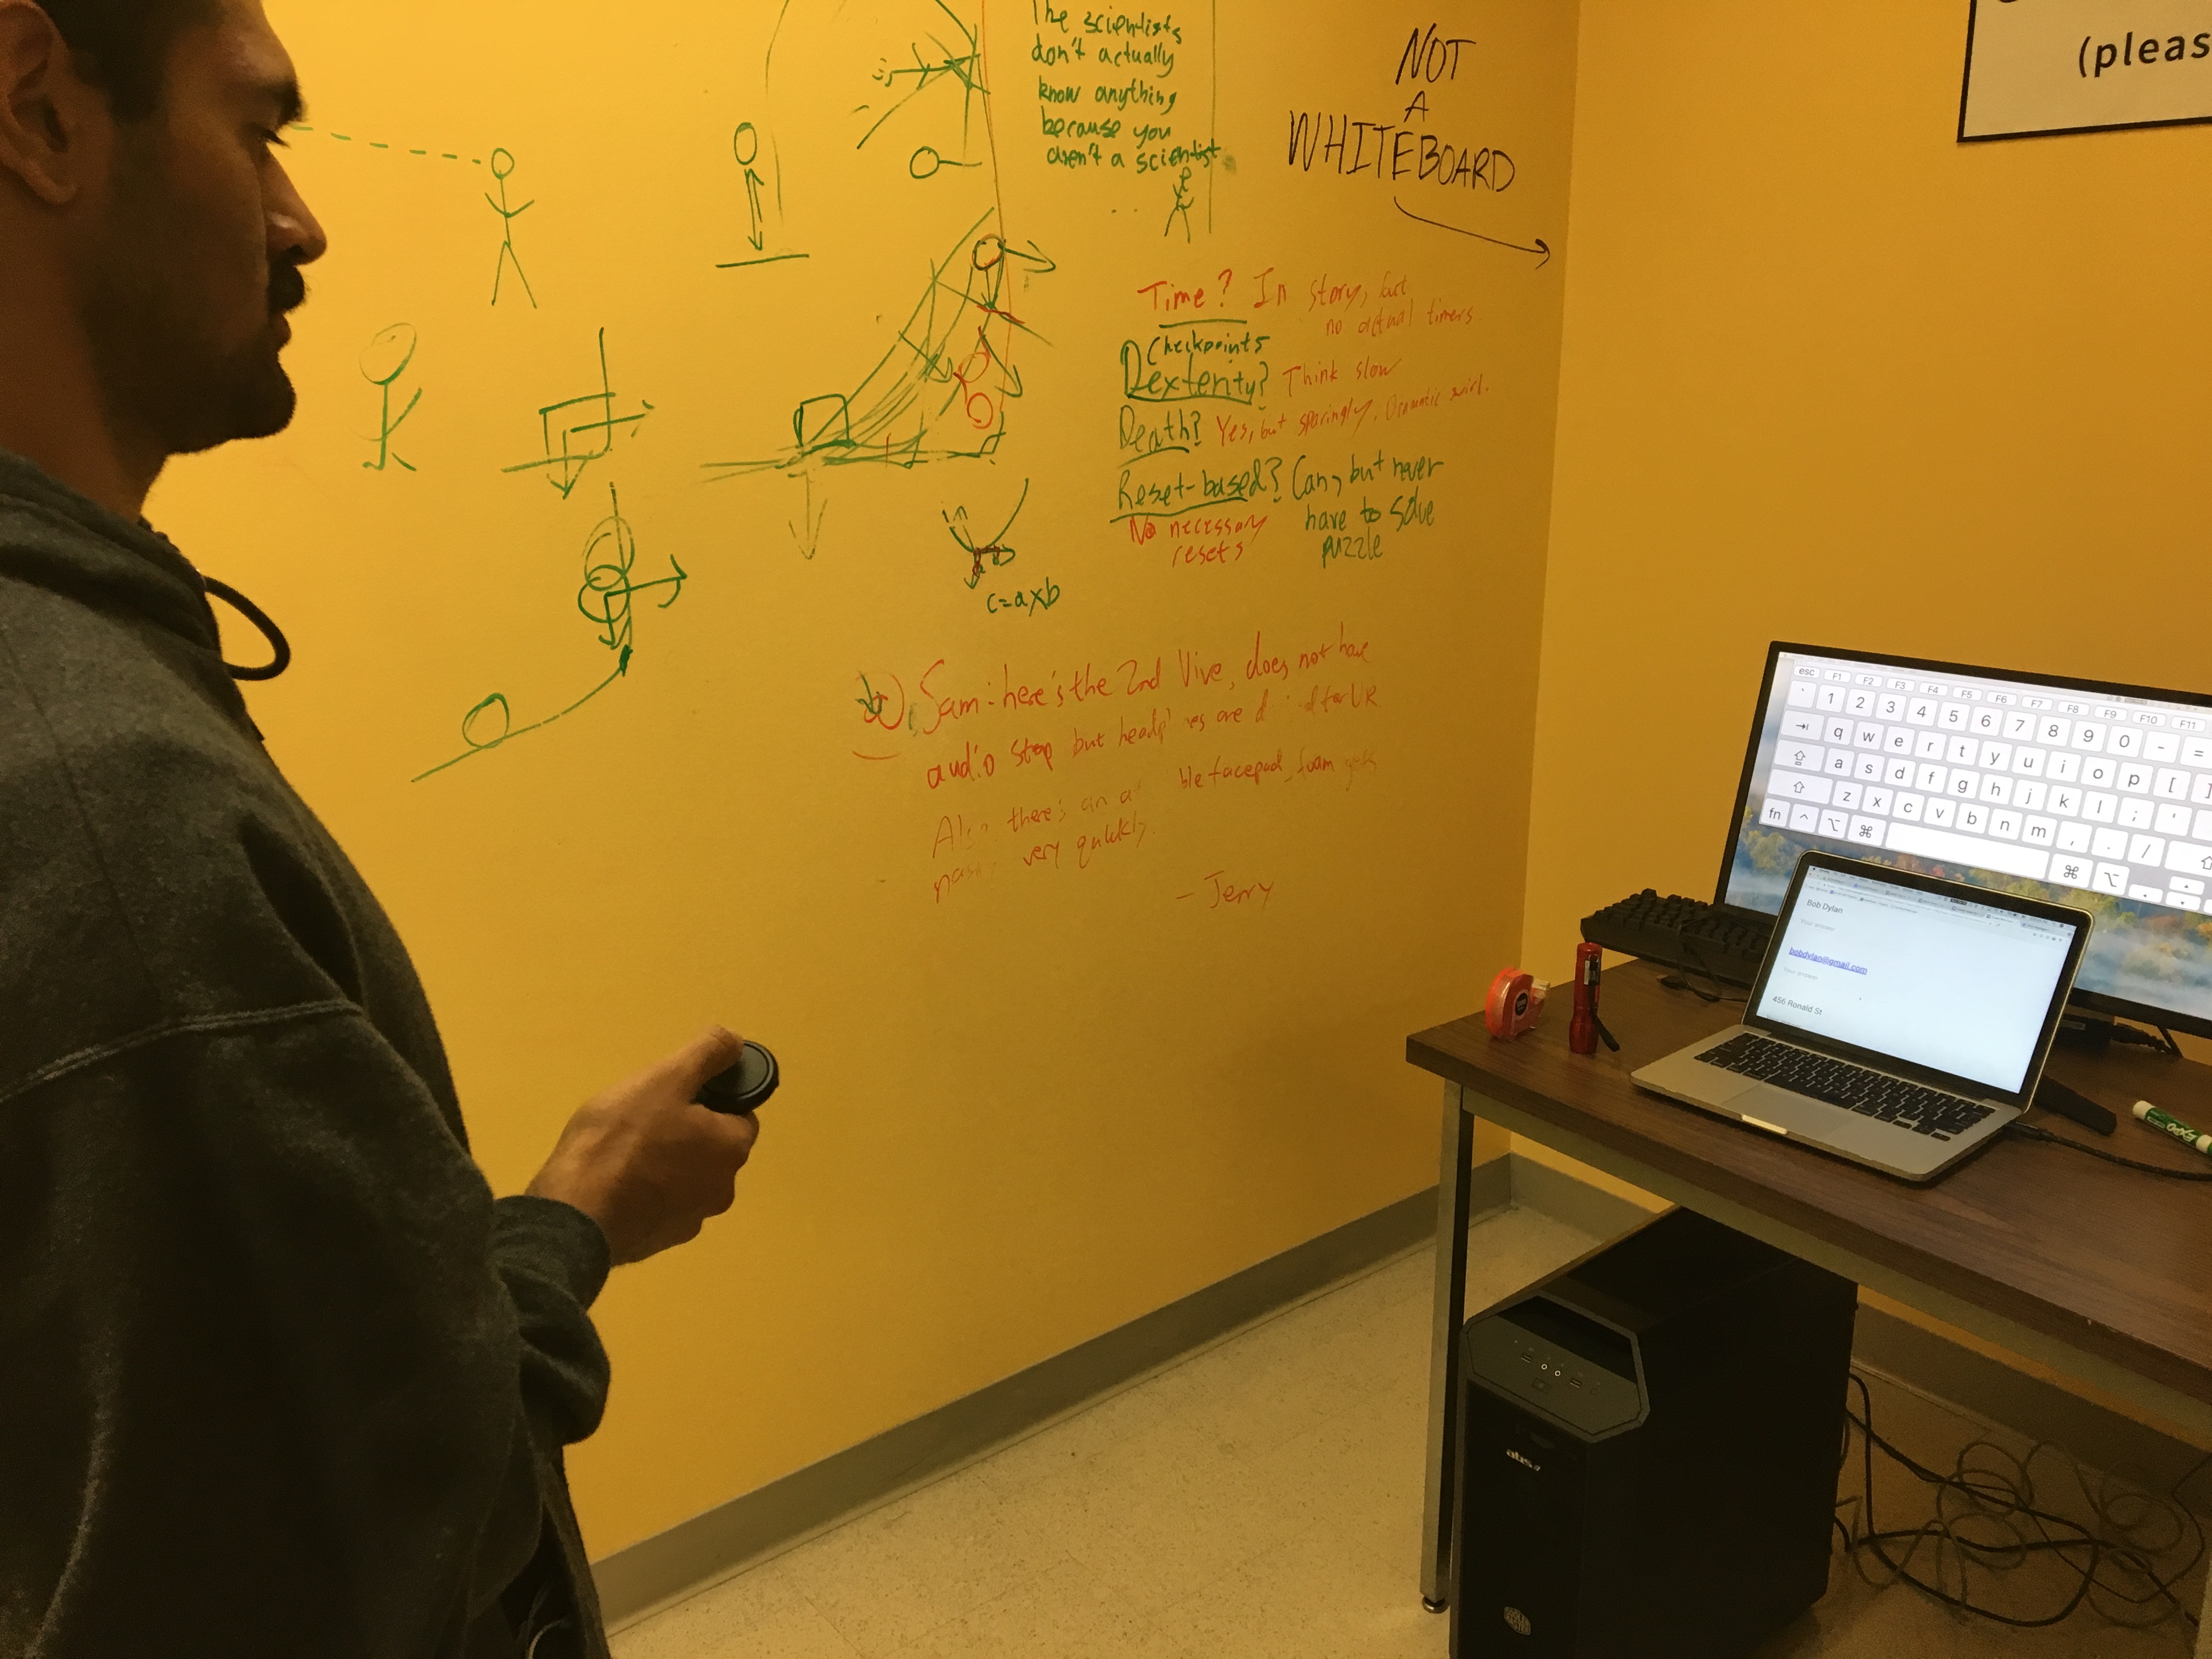 The scientists
don't actually
know anything
because you
aren't a scientist
NOT
A
WHITEBOARD
(pleas
Time? In story, but
no actual timers.
Checkpoints
Dexterity? Think slow
Death? Yes, but sparingly. Dramatic swirl.
Reset-based? Can, but never
have to solve
puzzle
No necessary
resets
c=axb
Sam: here's the 2nd Vive, does not have
audio strap but are for VR
there's an facepad, foam gets
very quickly.
- Jerry
esc F1 F2 F3 F4 F5 F6 F7 F8 F9 F10 F11
` 1 2 3 4 5 6 7 8 9 0 - =
q w e r t y u i o p [ ]
a s d f g h j k l ; '
z x c v b n m , . /
fn ^ ⌥ ⌘ ⌘ ⌥
Bob Dylan
Your answer
bobdylan@gmail.com
Your answer
456 Ronald St
EXPO
abs